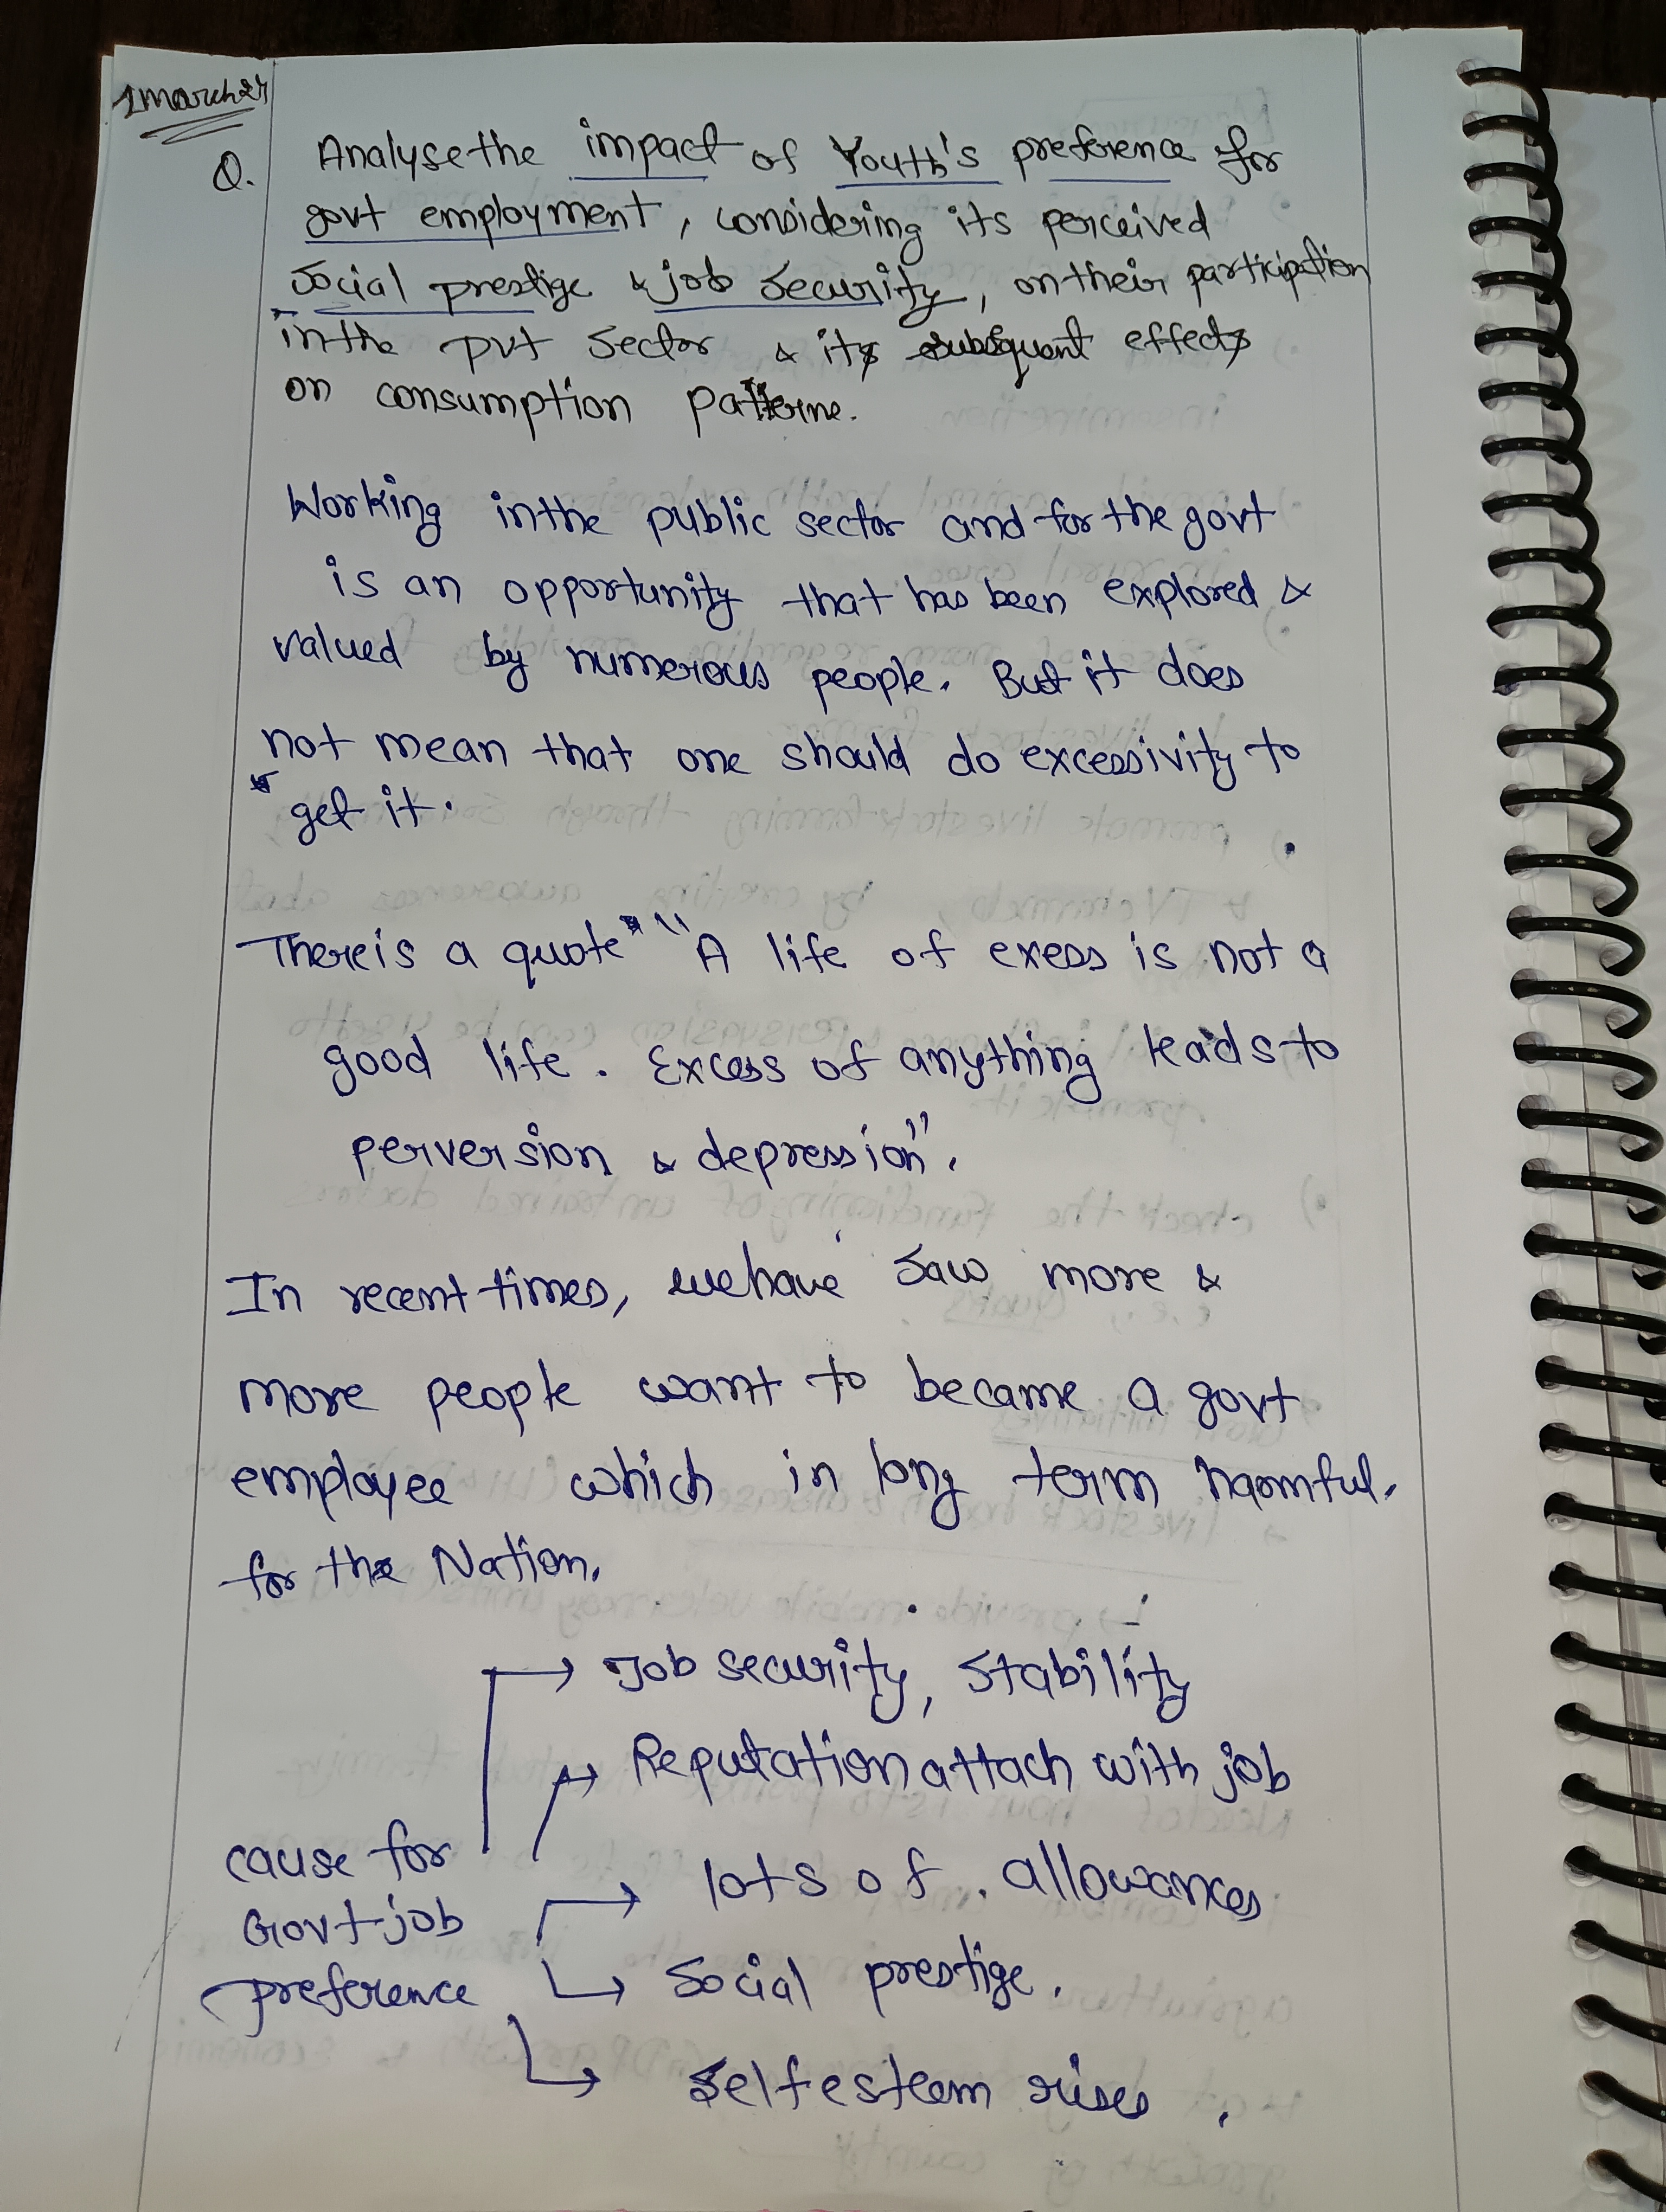 1 March 24
Q. Analyse the impact of Youth's preference for
govt employment, considering its perceived
social prestige & job security, on their participation
in the pvt sector & its subsquent effects
on consumption patterne.
Working in the public sector and for the govt
is an opportunity that has been explored &
valued by numerous people. But it does
not mean that one should do excessivity to
get it.
There is a quote "A life of exess is not a
good life. Excess of anything leads to
perversion & depression".
In recent times, we have saw more &
more people want to became a govt
employee which in long term harmful.
for the Nation.
Job security, stability
Reputation attach with job
cause for
Govt job
preference
lots of allowances
Social prestige.
Self esteem rises.